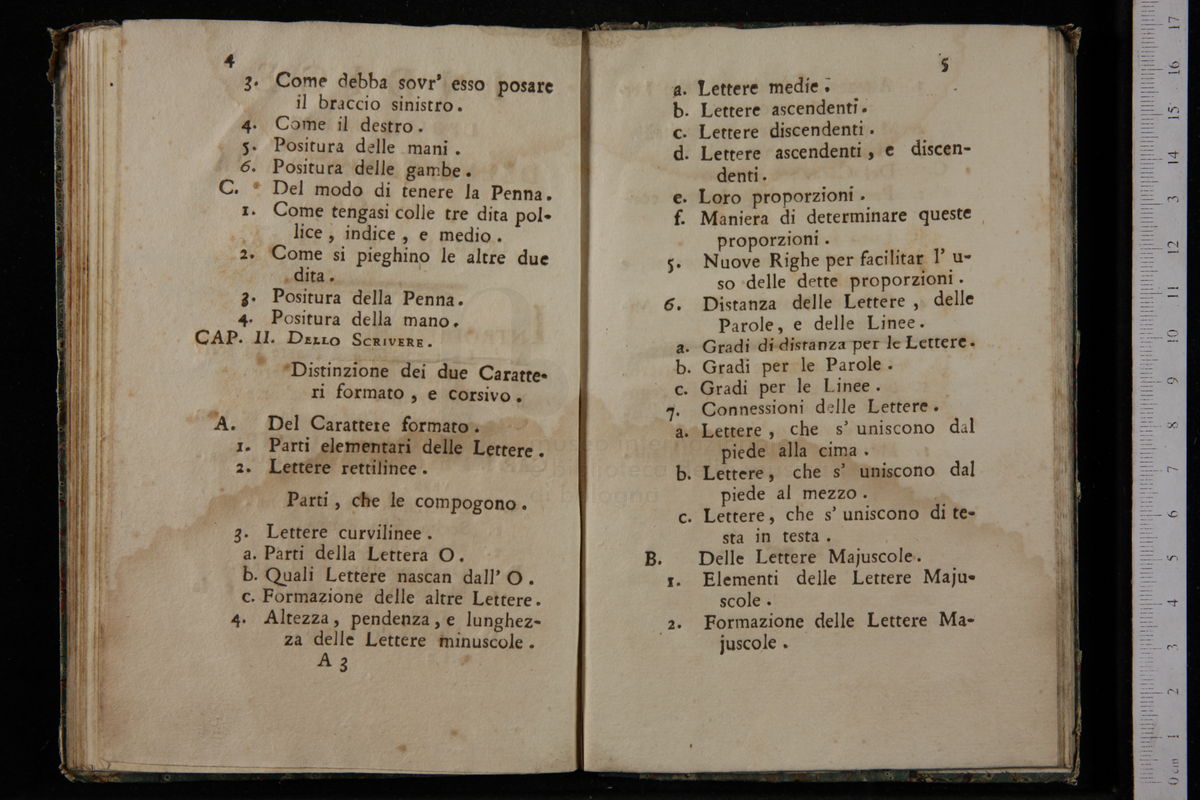 4
3. Come debba sovr' esso posare
il braccio sinistro.
4. Come il destro.
5. Positura delle mani.
6. Positura delle gambe.
C. Del modo di tenere la Penna.
1. Come tengasi colle tre dita pol-
lice, indice, e medio.
2. Come si pieghino le altre due
dita.
3. Positura della Penna.
4. Positura della mano.
CAP. II. DELLO SCRIVERE.
Distinzione dei due Caratte-
ri formato, e corsivo.
A. Del Carattere formato.
1. Parti elementari delle Lettere.
2. Lettere rettilinee.
Parti, che le compogono.
3. Lettere curvilinee.
a. Parti della Lettera O.
b. Quali Lettere nascan dall' O.
c. Formazione delle altre Lettere.
4. Altezza, pendenza, e lunghez-
za delle Lettere minuscole.
A 3
5
a. Lettere medie.
b. Lettere ascendenti.
c. Lettere discendenti.
d. Lettere ascendenti, e discen-
denti.
e. Loro proporzioni.
f. Maniera di determinare queste
proporzioni.
5. Nuove Righe per facilitar l' u-
so delle dette proporzioni.
6. Distanza delle Lettere, delle
Parole, e delle Linee.
a. Gradi di distanza per le Lettere.
b. Gradi per le Parole.
c. Gradi per le Linee.
7. Connessioni delle Lettere.
a. Lettere, che s' uniscono dal
piede alla cima.
b. Lettere, che s' uniscono dal
piede al mezzo.
c. Lettere, che s' uniscono di te-
sta in testa.
B. Delle Lettere Majuscole.
1. Elementi delle Lettere Maju-
scole.
2. Formazione delle Lettere Ma-
juscole.
di bologna
0 cm 1 2 3 4 5 6 7 8 9 10 11 12 13 14 15 16 17